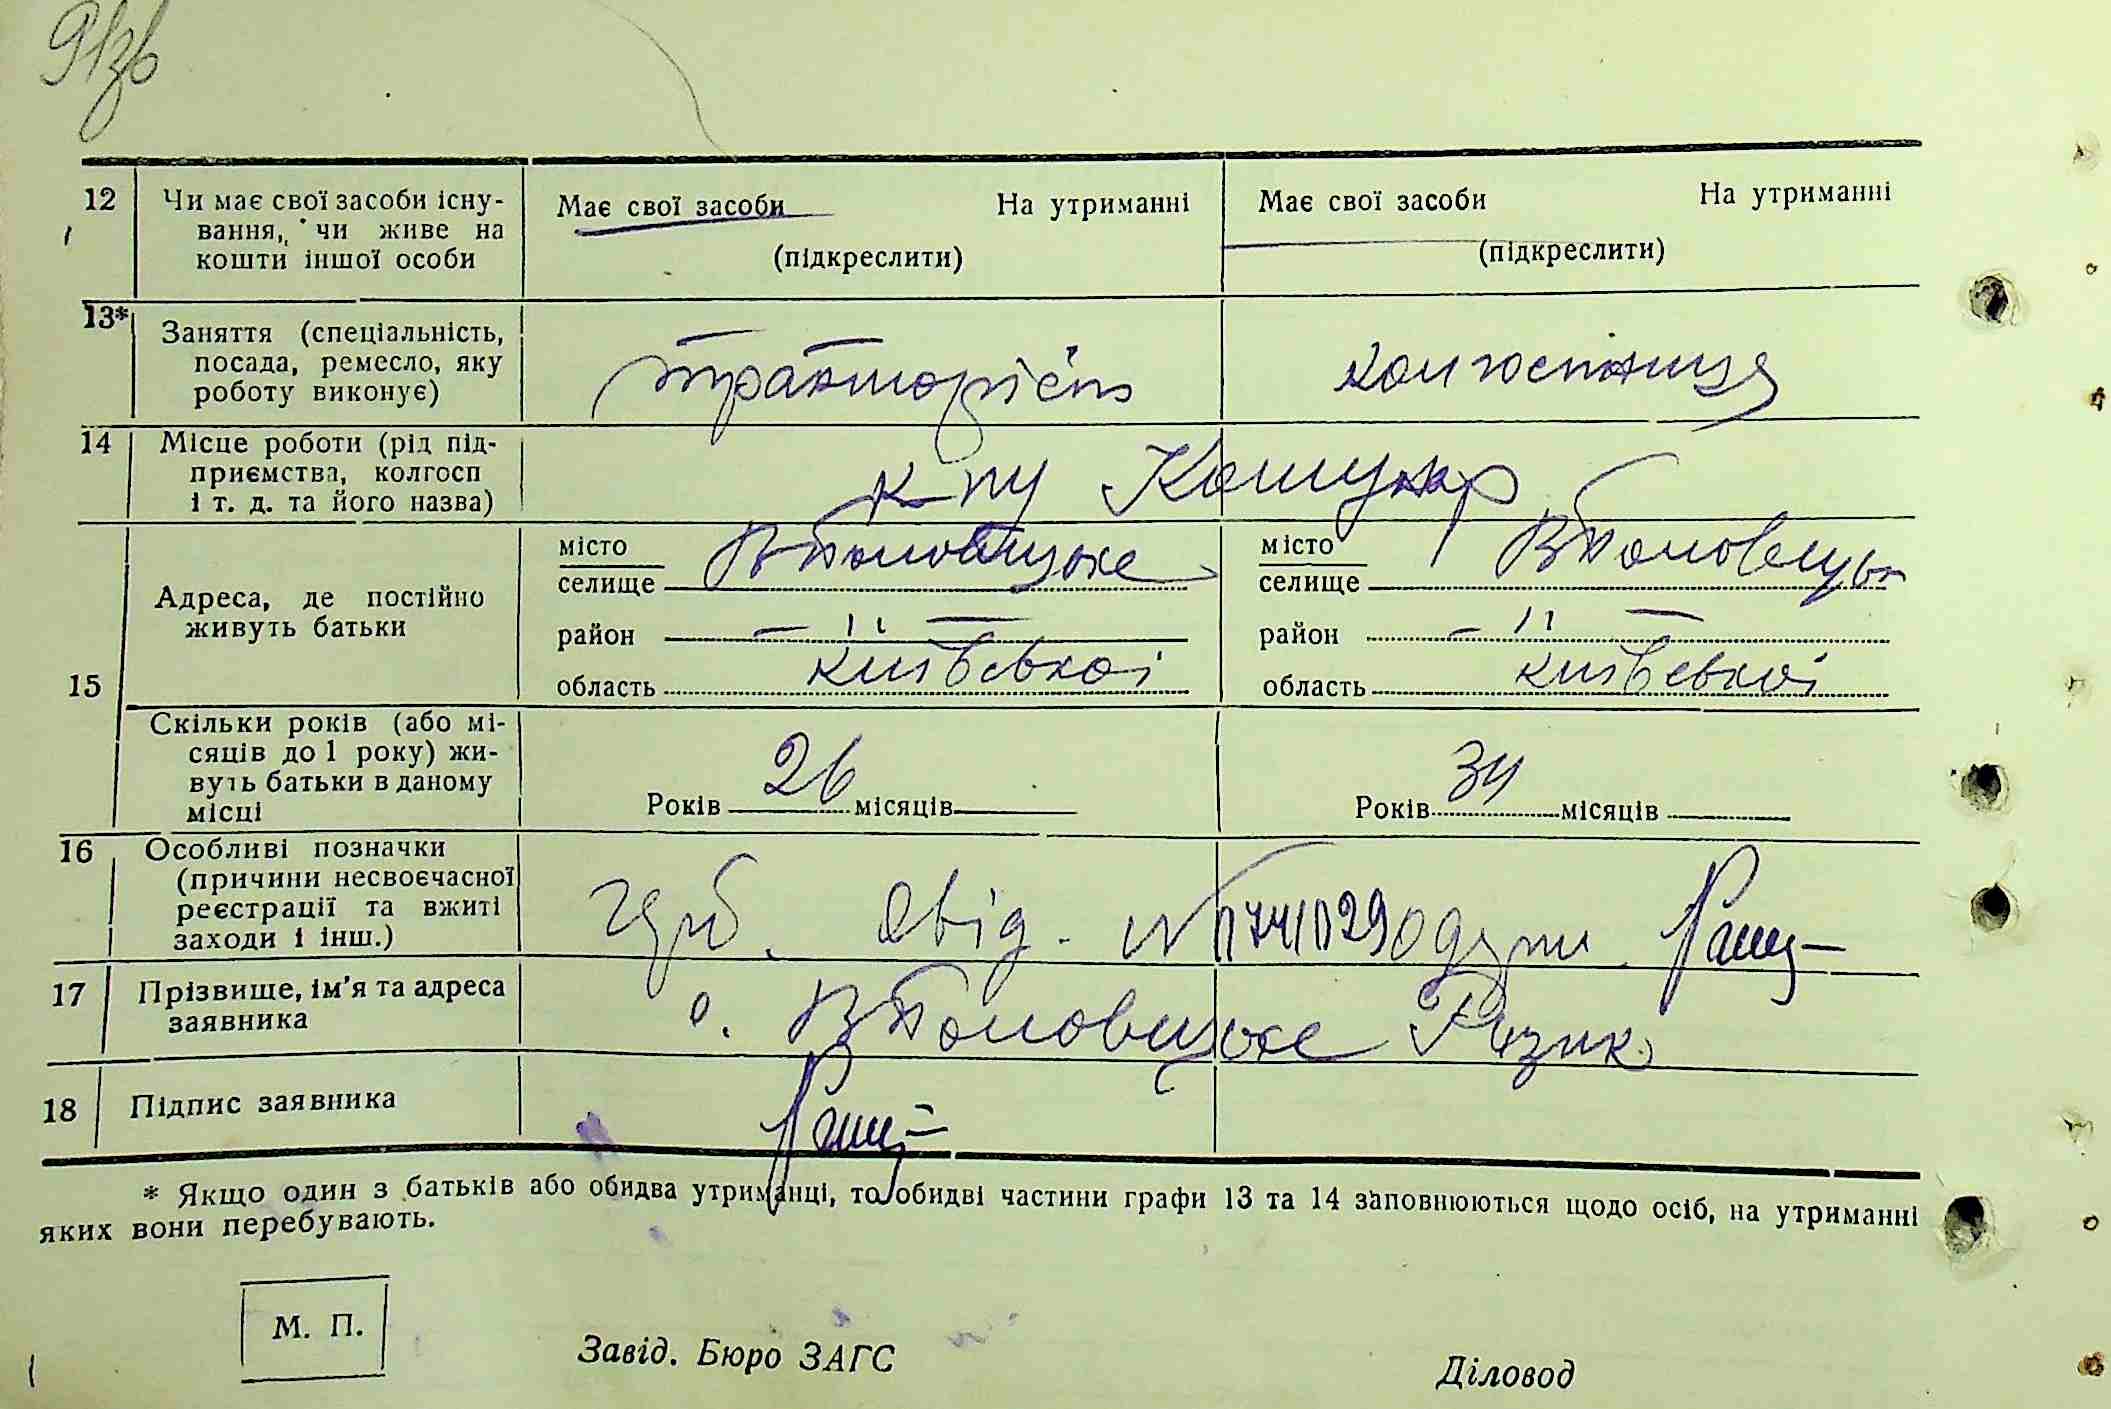 91зв
12 Чи має свої засоби існу- Має свої засоби На утриманні Має свої засоби На утриманні
вання, чи живе на (підкреслити) (підкреслити)
кошти іншої особи
13* Заняття (спеціальність, тракторість колгоспниця
посада, ремесло, яку
роботу виконує)
14 Місце роботи (рід під-
приємства, колгосп
і т. д. та його назва)
15 Адреса, де постійно
живуть батьки
місто
селище В Половецьке
район - ІІ -
область київської
місто
селище В Половецьк
район - ІІ -
область київської
Скільки років (або мі-
сяців до 1 року) жи-
вуть батьки в даному
місці
Років 26 місяців
Років 34 місяців
16 Особливі позначки
(причини несвоєчасної
реєстрації та вжиті
заходи і інш.)
свід. №
17 Прізвище, ім'я та адреса с. В Половецьке
заявника
18 Підпис заявника
* Якщо один з батьків або обидва утриманці, то обидві частини графи 13 та 14 заповнюються щодо осіб, на утриманні
яких вони перебувають.
М. П.
Завід. Бюро ЗАГС
Діловод